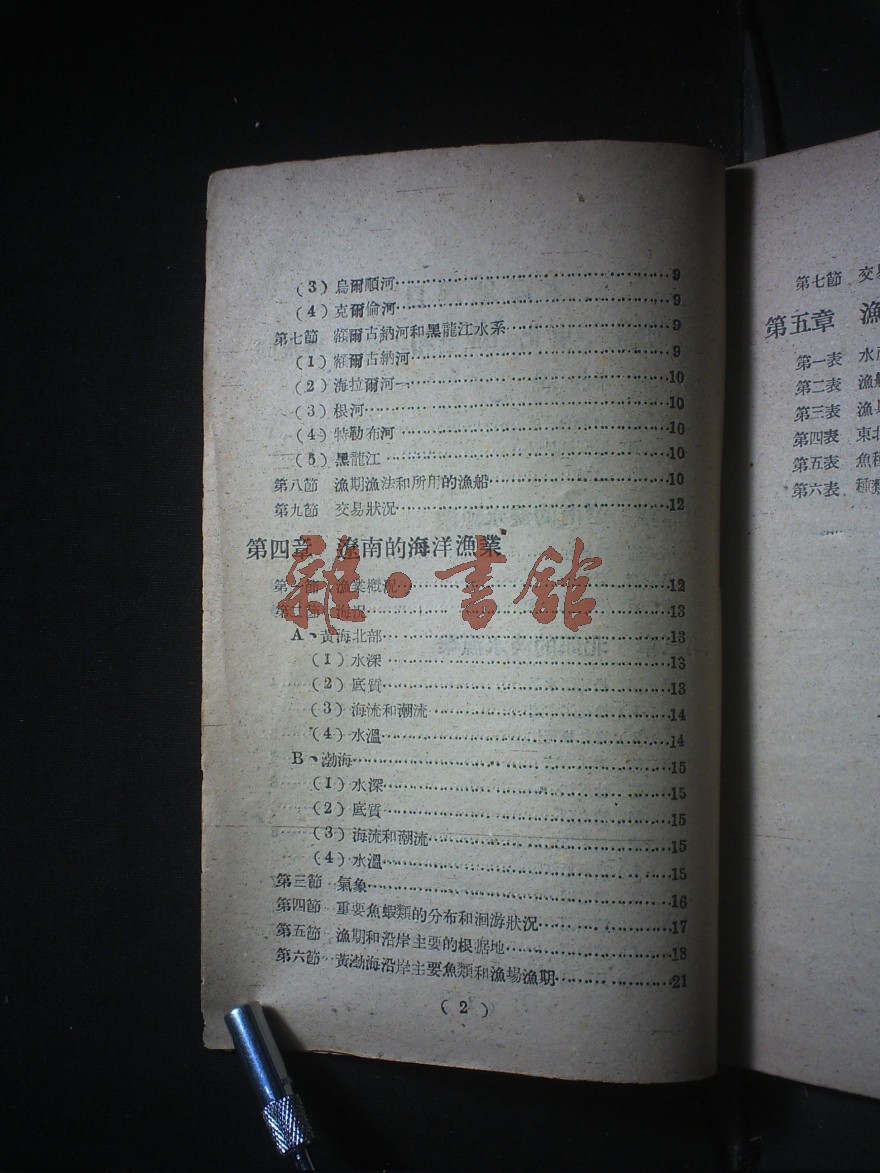 (3) 烏爾順河……9
(4) 克爾倫河……9
第七節 額爾古納河和黑龍江水系……9
(1) 額爾古納河……9
(2) 海拉爾河……10
(3) 根河……10
(4) 特勒布河……10
(5) 黑龍江……10
第八節 漁期漁法和所用的漁船……10
第九節 交易狀況……12
第四章 遼南的海洋漁業
第一節 漁業概況……12
第二節 海況……13
A、黃海北部……13
(1) 水深……13
(2) 底質……13
(3) 海流和潮流……14
(4) 水溫……14
B、渤海……15
(1) 水深……15
(2) 底質……15
(3) 海流和潮流……15
(4) 水溫……15
第三節 氣象……16
第四節 重要魚蝦類的分布和洄游狀況……17
第五節 漁期和沿岸主要的根据地……18
第六節 黃渤海沿岸主要魚類和漁場漁期……21
(2)
雜·書館
第七節 交
第五章 漁
第一表 水
第二表 漁
第三表 漁
第四表 東北
第五表 魚種
第六表 種類